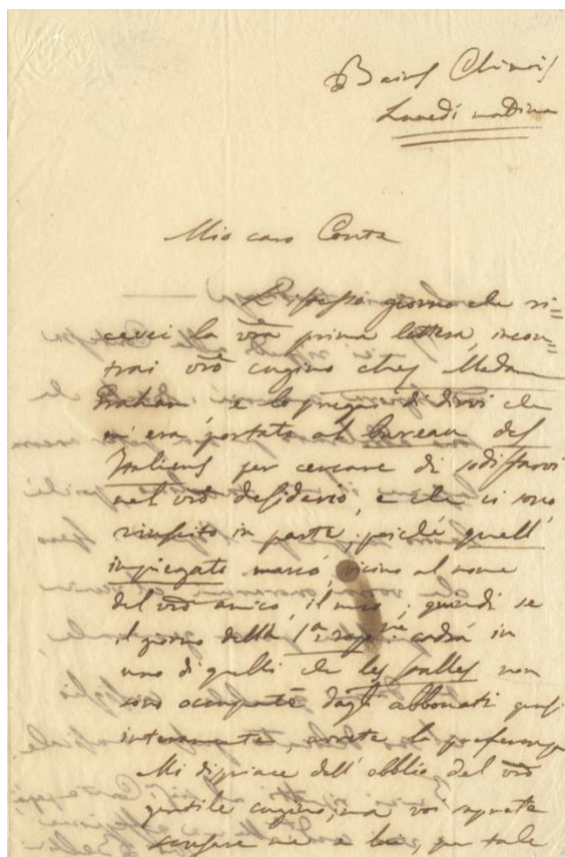 Bains Chinois
Lunedì mattina
Mio caro Conte
Lo stesso giorno che ri=
cevei la vrã prima lettera, incon=
trai vrõ cugino chez Madame
Graham e lo pregai di dirvi che
m'era portato al bureau des
Italiens per cercare di sodisfarvi
nel vrõ desiderio, e che ci sono
riuscito in parte, poiché quell'
impiegato marcó, vicino al nome
del vrõ amico, il mio; quindi se
il giorno della 1ª rap.ne cadrá in
uno di quelli che les salles non
sono occupate dagli abbonati quasi
interamente avrete la preferenza
Mi dispiace dell' obblio del vrõ
gentile cugino, ma voi saprete
scusare me e lui, per tale